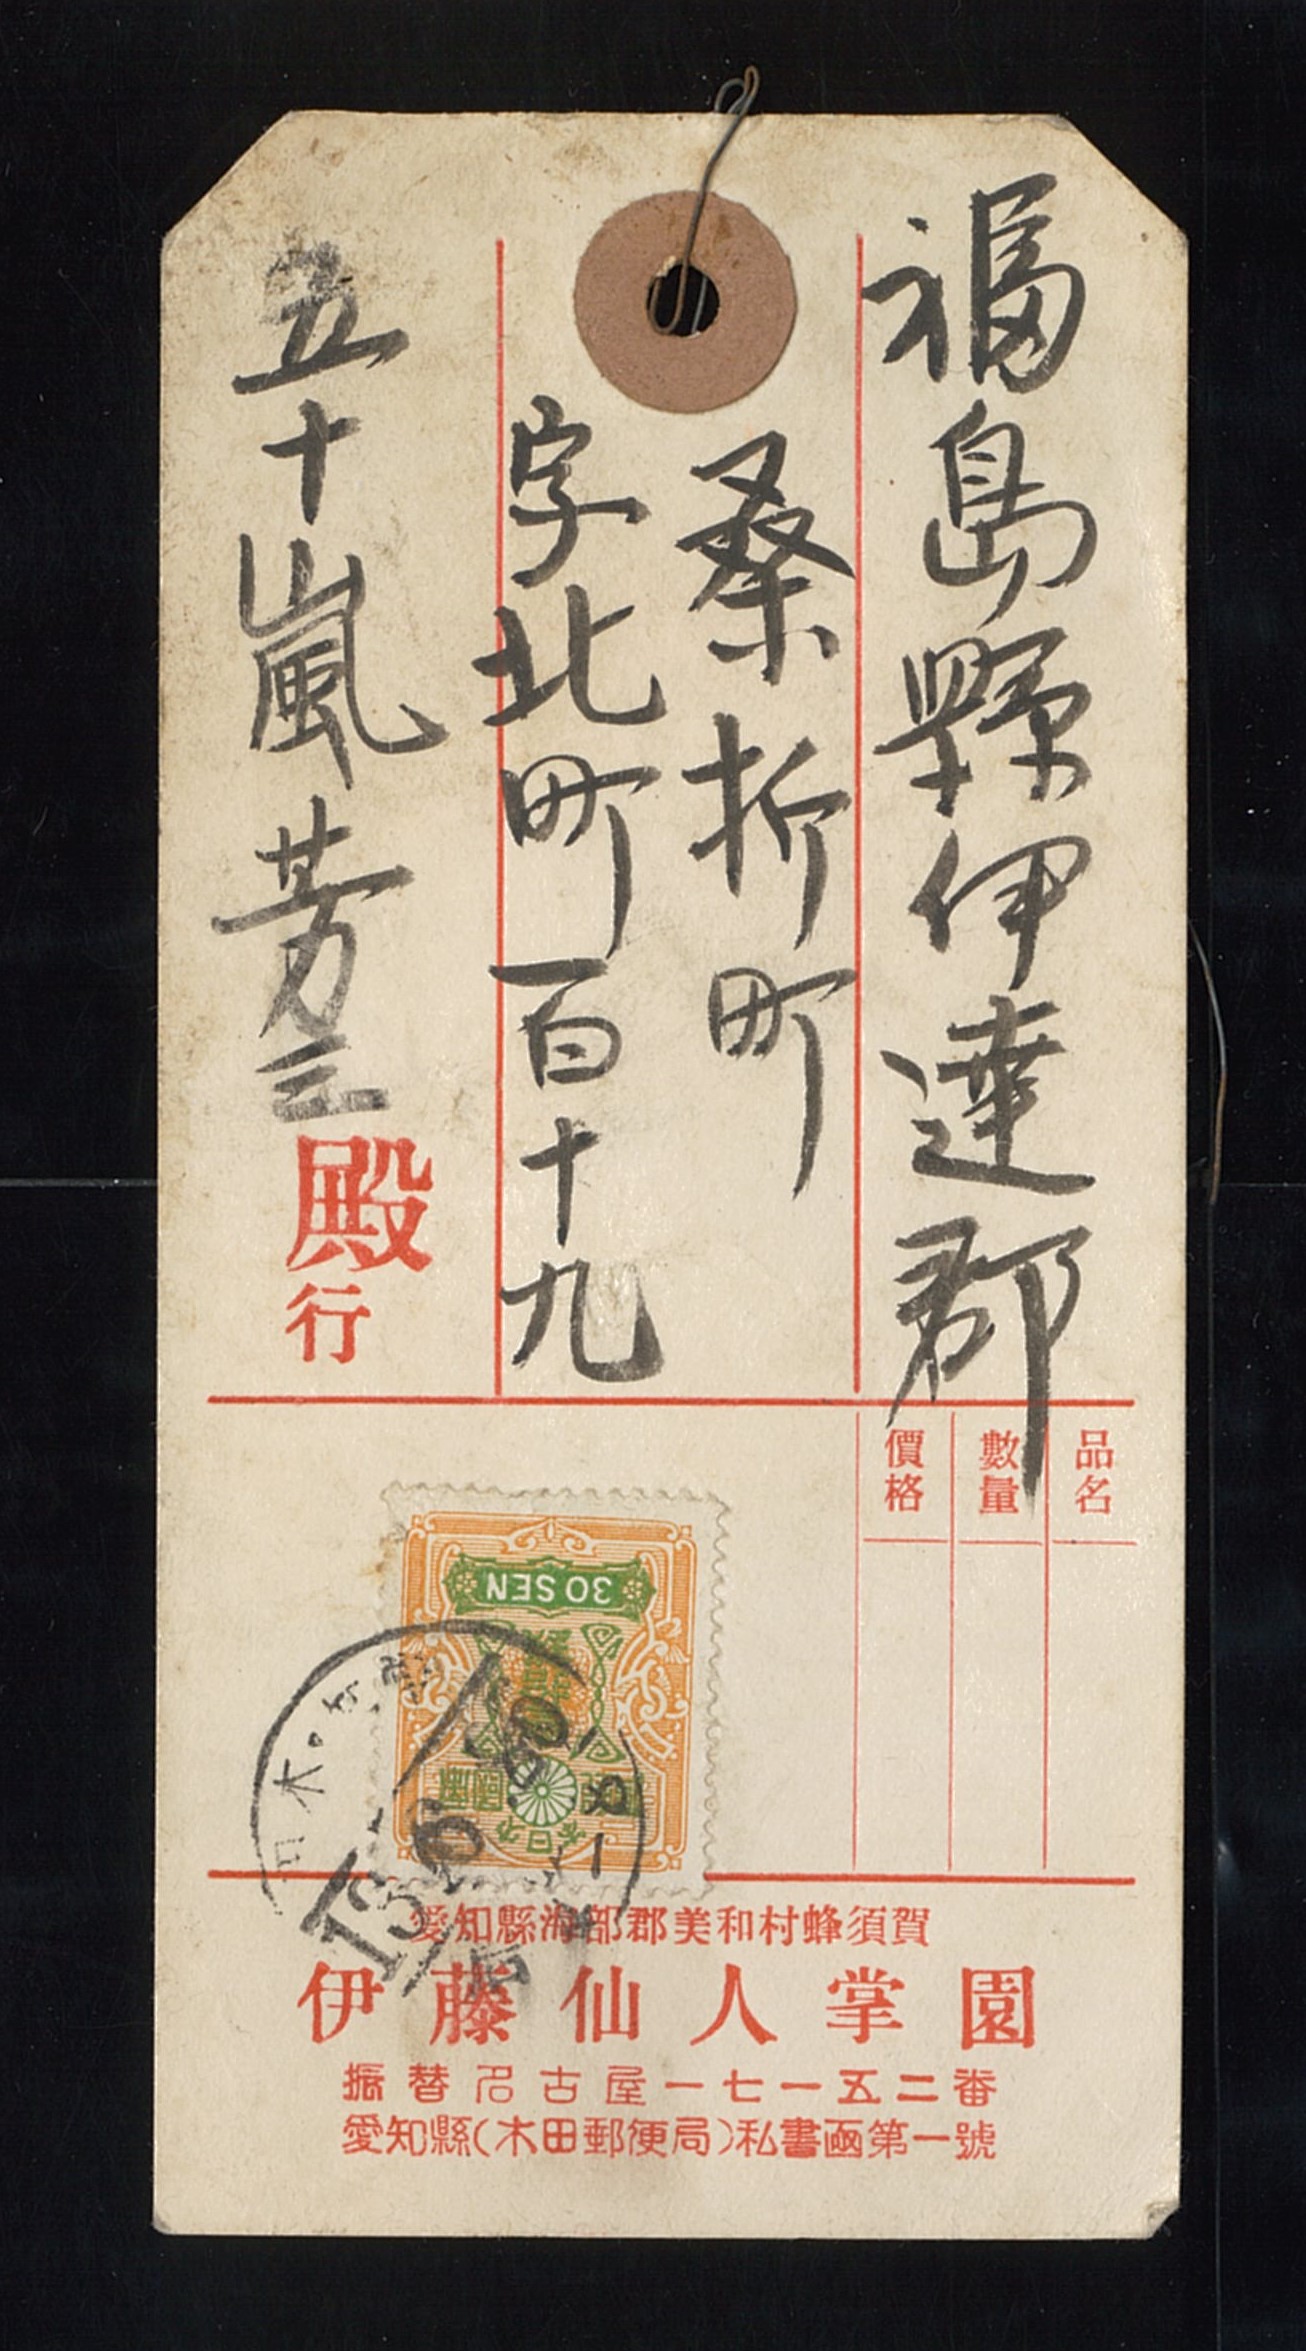 福島縣伊達郡
桑折町
字北町百十九
五十嵐芳三
殿行
品名
數量
價格
30 SEN
愛知縣海部郡美和村蜂須賀
伊藤仙人掌園
振替名古屋一七一五二番
愛知縣(木田郵便局)私書凾第一號